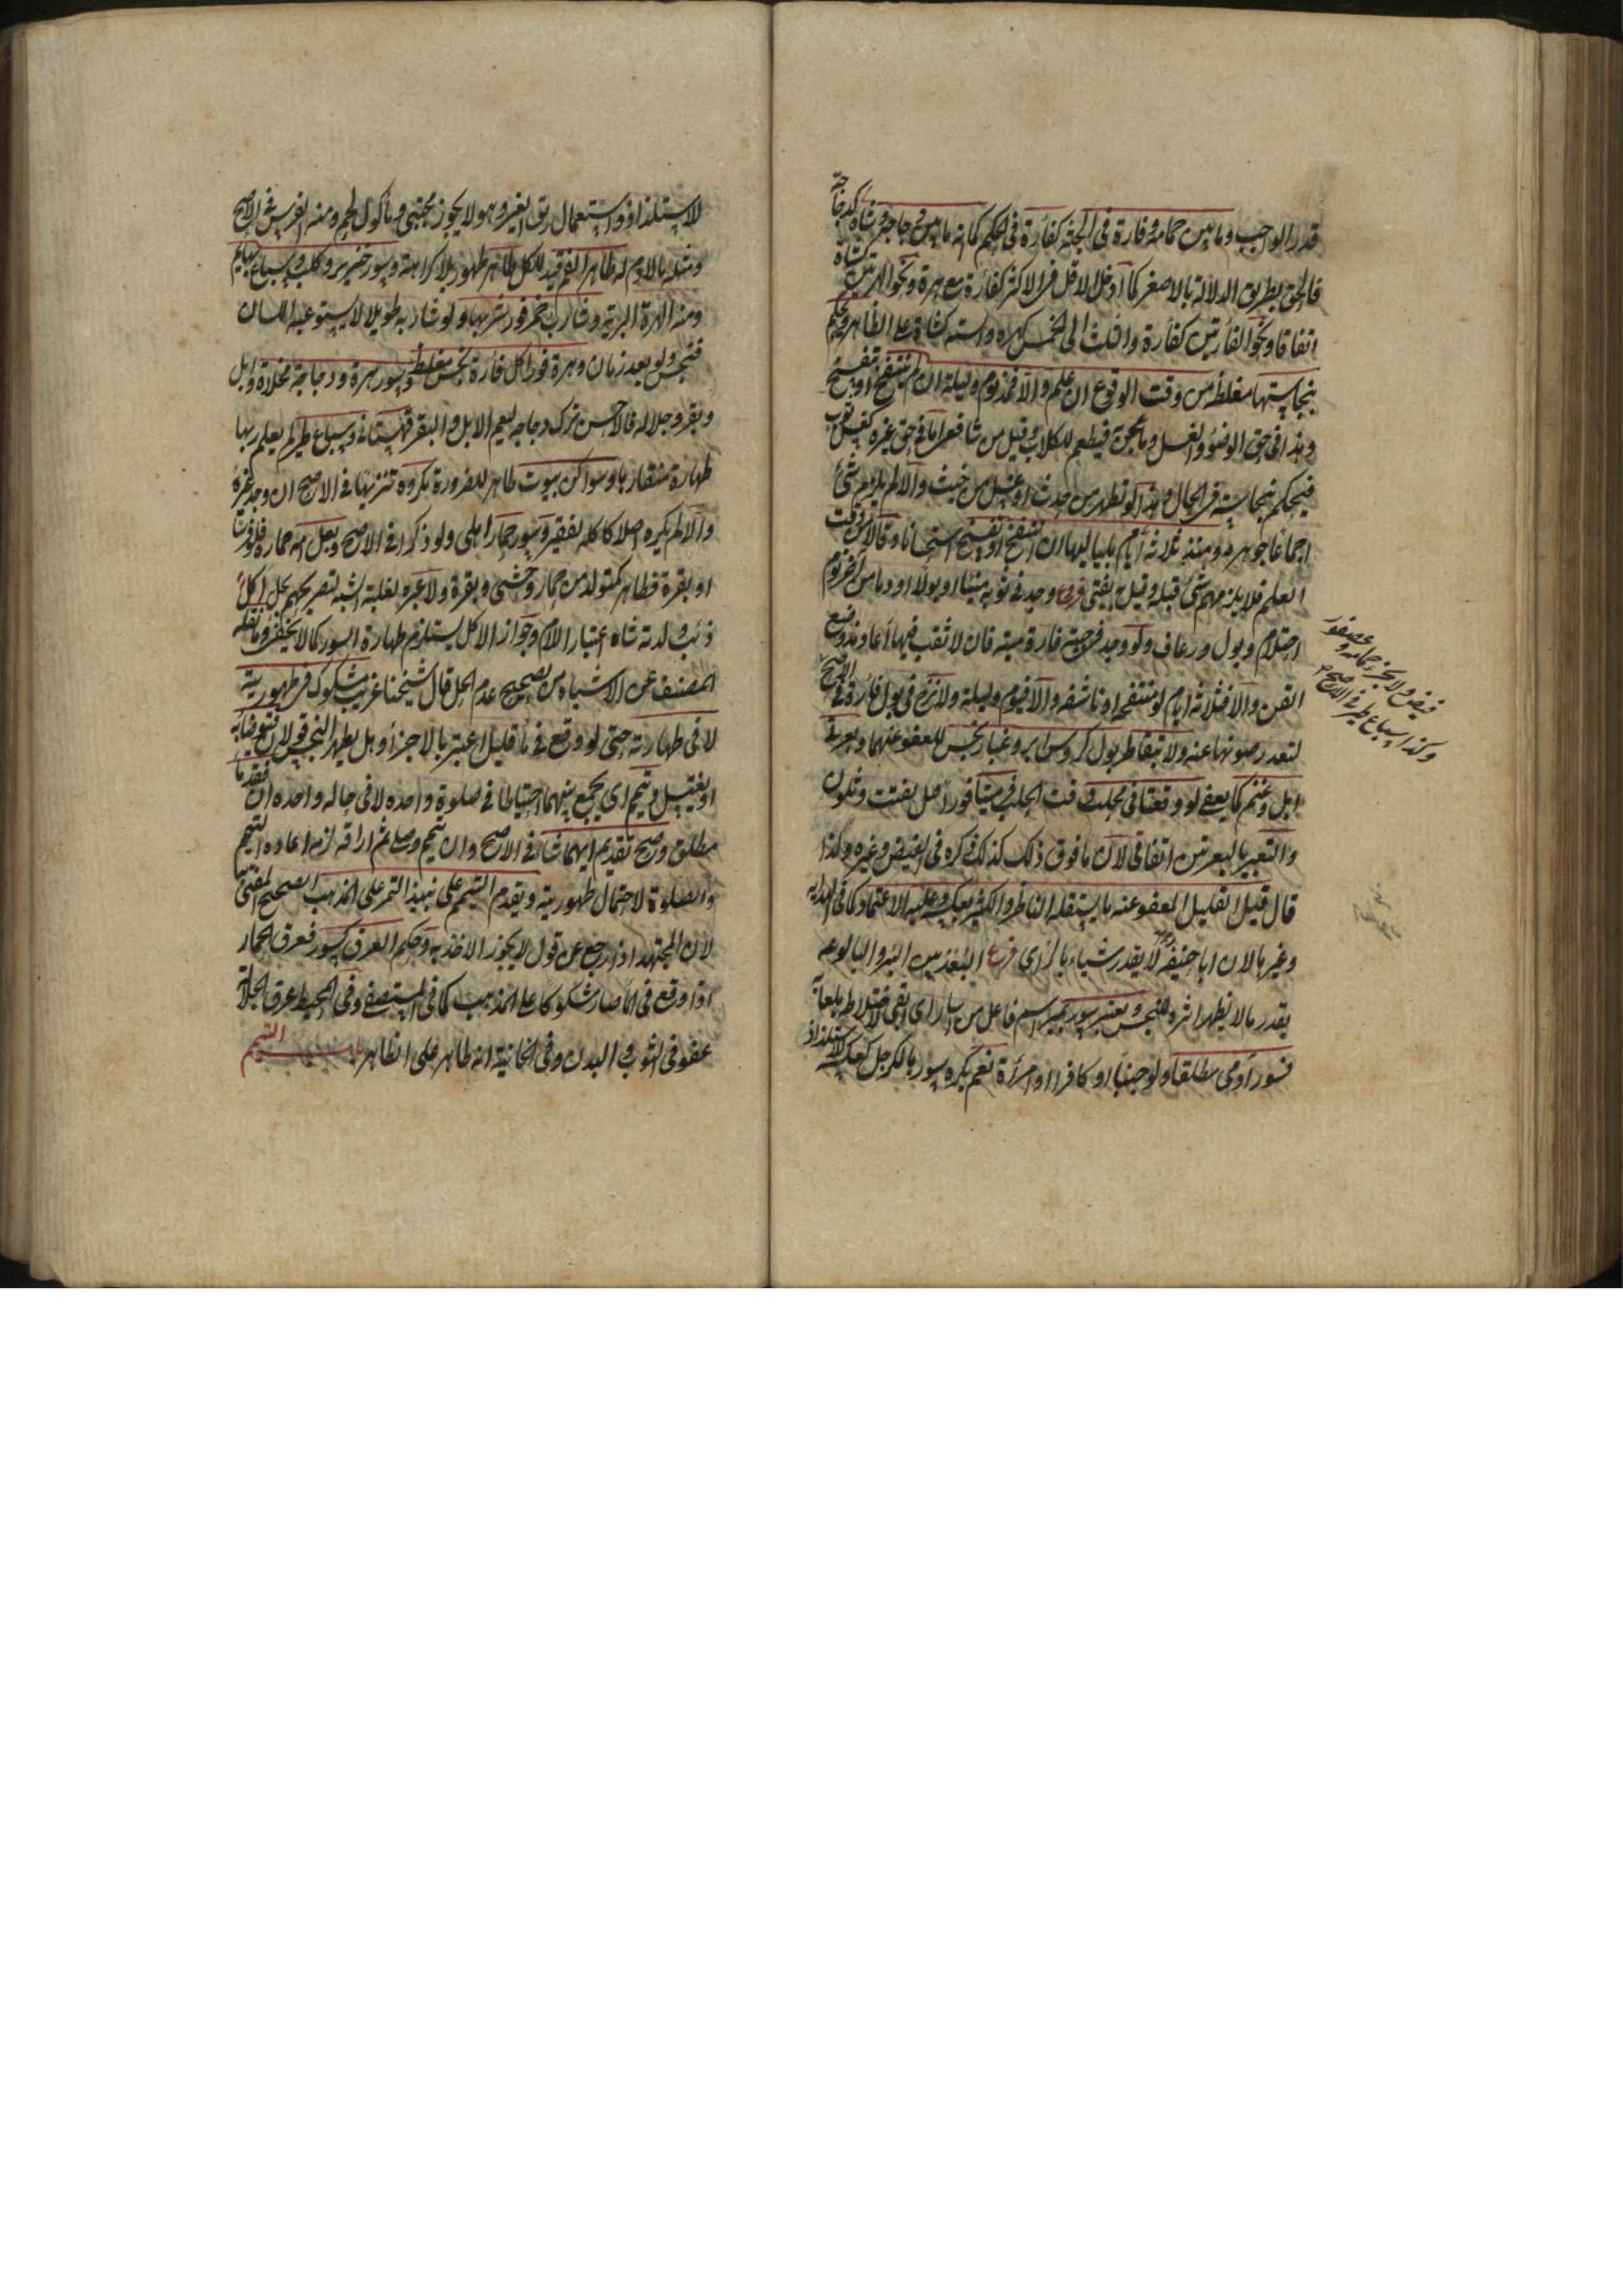 قدر الواجب وما بين حمامة وفارة في الجثة كفأرة في الحكم كما ان ما بين دجاجة وشاة كدجاجة
فالحق بطريق الدلالة بالاصغر كما ادخل الاقل في الاكثر كفأرة مع هرة ونحو الهرتين كشاة
اتفاقا ونحو الفأرتين كفأرة والثلث الى الخمس كهرة والست كشاة على الظاهر ويحكم
بنجاستها مغلظة من وقت الوقوع ان علم والا فمذ يوم وليلة ان لم ينتفخ او يتفسخ
وهذا في حق الوضوء والغسل وما عجن به فيطعم للكلاب وقيل من شافعي اما في حق غيره كغسل ثوب
فيحكم بنجاسته في الحال وهذا لو تطهر من حدث او غسل من خبث والا لم يلزم شئ
اجماعا جوهره ومنذ ثلاثة أيام بلياليها ان انتفخ او تفسخ استحسانا وقالا من وقت
العلم فلا يلزمهم شئ قبله وقيل به يفتى فروع وجد في ثوبه منيا او بولا او دما من آخر نوم
احتلام وبول ورعاف ولو وجد في جبته فارة ميتة فان لا ثقب فيها أعاد مذ وضع
القطن والا فثلاثة ايام لو منتفخه او ناشفه والا فيوم وليلة ولا نزح في بول فارة في الاصح
فيض ولا بخرء حمامه وعصفور
وكذا سباع طير في الاصح
لتعذر صونها عنه ولا بتقاطر بول كرؤس ابر وغبار نجس للعفو عنهما وبعرتي
ابل وغنم كما يعفى لو وقعتا في محلب وقت الحلب فرميتا فورا قبل تفتت وتلون
والتعبير بالبعرتين اتفاقي لان ما فوق ذلك كذلك ذكره في الفيض وغيره ولذا
قال قيل القليل المعفو عنه ما يستقله الناظر والكثير بعكسه وعليه الاعتماد كما في الهدايه
وغيرها لان ابا حنيفة لا يقدر شيئا بالرأي فرع البعد بين البئر والبالوعه
بقدر ما لا يظهر اثره للنجس ويعتبر سور بمسئر اسم فاعل من اسار اى ابقى لاختلاطه بلعابه
فسور آدمى مطلقا ولو جنبا او كافرا او امرأة نعم يكره سورها للرجل كعكسه للاستلذاذ
لاستلذاذ واستعمال ريق الغير وهو لا يجوز مجتبى ومأكول لحم ومنه الفرس في الاصح
ومثله ما لا دم له طاهر الفم قيد للكل طاهر طهور بلا كراهة وسور خنزير وكلب وسباع بهايم
ومنه الهرة البرية وشارب خمر فور شربها ولو شاربه طويلا لا يستوعبه اللسان
فنجس ولو بعد زمان وهرة فور اكل فأرة نجس مغلظ وسور هرة ودجاجة مخلاة وابل
وبقر وجلاله فالاحسن ترك دجاجه ليعم الابل والبقر قهستانى وسباع طير لم يعلم ربها
طهارة منقارها وسواكن بيوت طاهر للضرورة مكروه تنزيها في الاصح ان وجد غيره
والا لم يكره اصلا كاكله لفقير وسور حمار اهلى ولو ذكرا في الاصح وبغل امه حمارة فلو فرسا
او بقرة فطاهر كمتولد من حمار وحشى وبقرة ولا عبره لغلبة الشبه لتصريحهم بحل اكل
ذئب ولدته شاه اعتبارا للام وجواز الاكل يستلزم طهارة السور كما لا يخفى وما نقله
المصنف عن الاشباه من تصحيح عدم الحل قال شيخنا غريب مشكوك في طهوريته
لا في طهارته حتى لو وقع في ماء قليل اعتبر بالاجزاء وهل يطهر النجس قولان فيتوضأ به
او يغتسل ويتيمم اى يجمع بينهما احتياطا في صلوة واحده لا في حاله واحده ان فقد ما
مطلق وصح تقديم ايهما شاء في الاصح وان تيمم وصلى ثم اراقه لزمه اعاده التيمم
والصلوة لاحتمال طهوريته ويقدم التيمم على نبيذ التمر على المذهب الصحيح المفتى به
لان المجتهد اذا رجع عن قول لا يجوز الاخذ به وحكم العرق كسور فعرق الحمار
اذا وقع في الماء صار مشكوكا على المذهب كما في المستصفى وفي المحيط عرق الجلالة
عفو في الثوب والبدن وفي الخانية انه طاهر على الظاهر باب التيمم